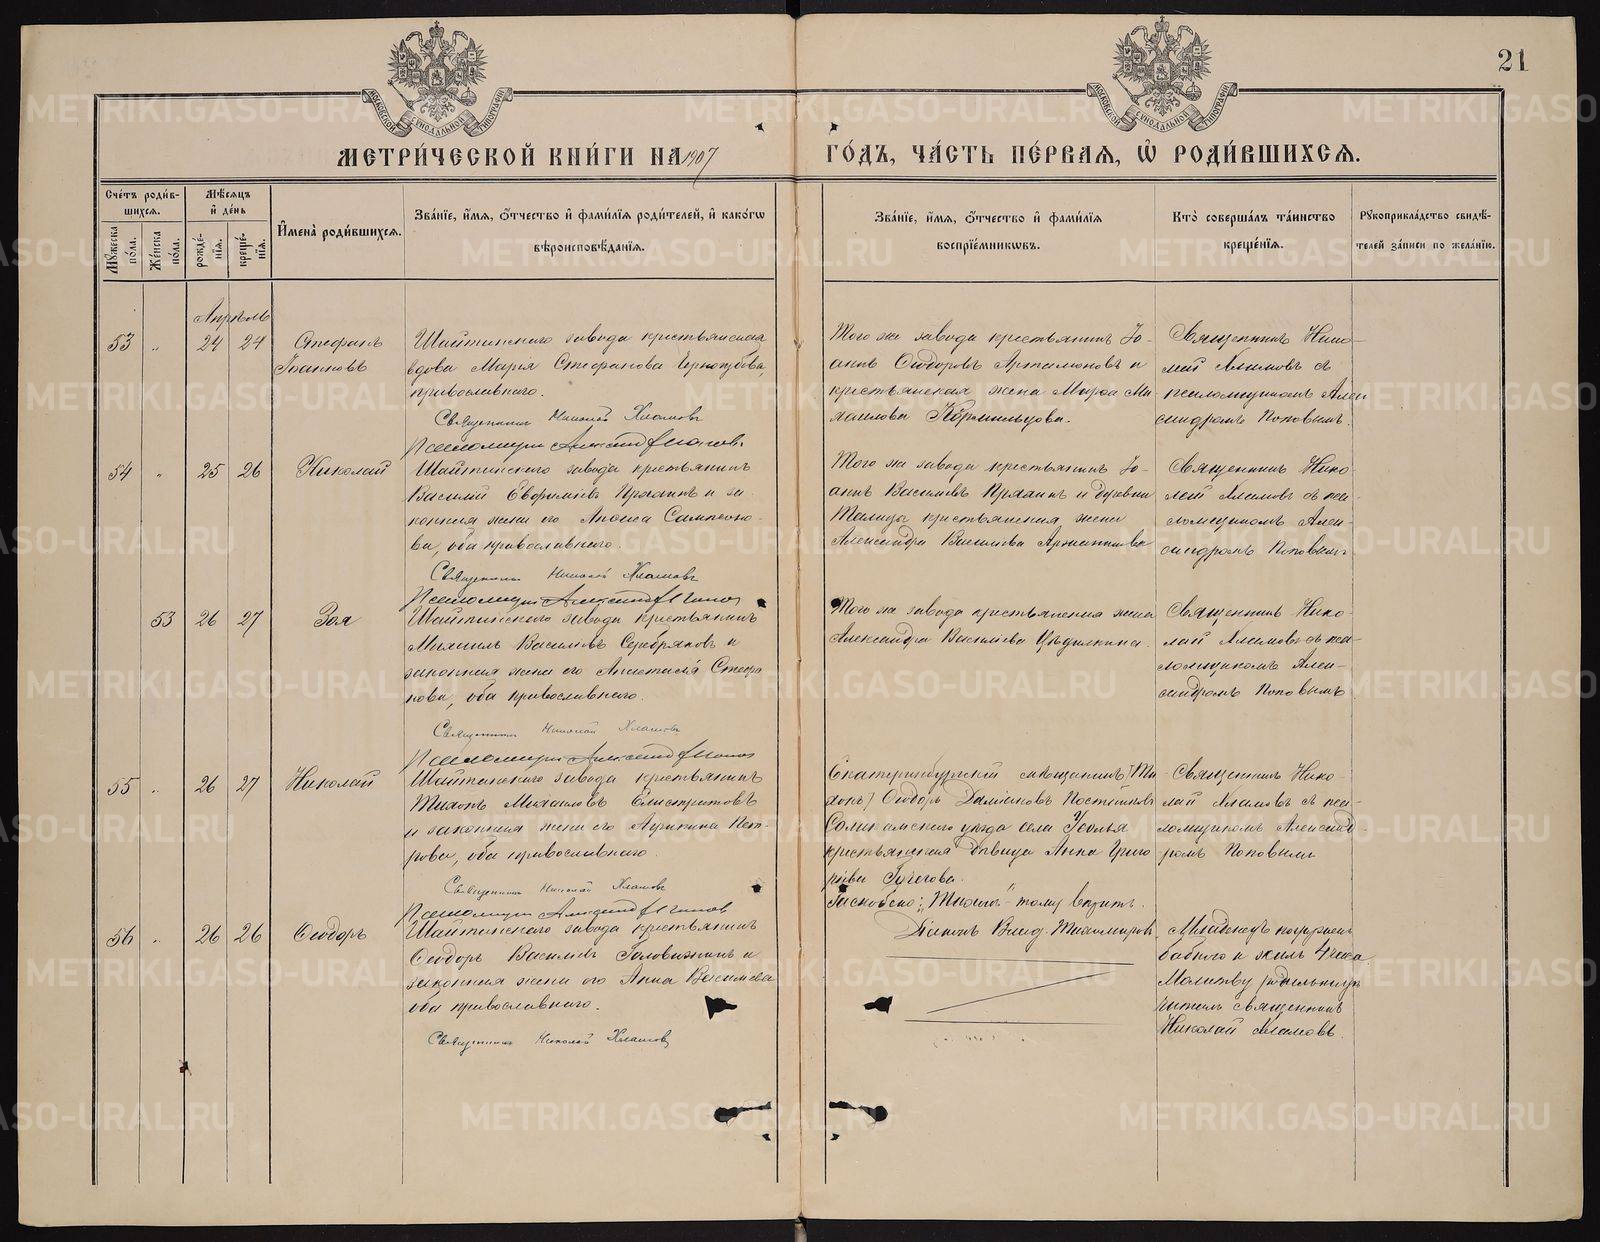 21
МОСКОВСКОЙ СѴНОДАЛЬНОЙ ТИПОГРАФІИ
МОСКОВСКОЙ СѴНОДАЛЬНОЙ ТИПОГРАФІИ
МЕТРИ́ЧЕСКОЙ КНИ́ГИ НА 1907
ГО́ДЪ, ЧА́СТЬ ПЕ́РВАЯ, Ѡ҆ РОДИ́ВШИХСЯ.
Сче́тъ роди́в-
шихся.
Мꙋ́жеска по́ла.
Же́нска по́ла.
Мѣ́сяцъ
и҆ де́нь
рожде́-
нїя.
креще́-
нїя.
И҆мена̀ роди́вшихся.
Зва́нїе, и҆́мя, ѻ҆́тчество и҆ фами́лїя роди́телей, и҆ како́гѡ
вѣроисповѣ́данїя.
Зва́нїе, и҆́мя, ѻ҆́тчество и҆ фами́лїя
воспрїе́мниковъ.
Кто̀ соверша́лъ та́инство
креще́нїя.
Рꙋкоприкла́дство свидѣ́-
телей за́писи по жела́нїю.
Апрѣль
53 „ 24 24
Стефанъ
Іоанновъ
Шайтанскаго завода крестьянская
вдова Марія Стефанова
православнаго.
Священникъ Николай Хламовъ
Псаломщикъ Александръ Поповъ
Того же завода крестьянинъ Іо-
аннъ Ѳеодоровъ Артамоновъ и
крестьянская жена Марѳа Ми-
хаилова Кормильцова.
Священникъ Нико-
лай Хламовъ съ
псаломщикомъ Алек
сандромъ Поповымъ.
54 „ 25 26
Николай
Шайтанскаго завода крестьянинъ
Василій Евфиміевъ Пряхинъ и за-
конная жена его Сампсоно-
ва, оба православнаго.
Священникъ Николай Хламовъ
Псаломщикъ Александръ Поповъ
Того же завода крестьянинъ Іо-
аннъ Васильевъ Пряхинъ и деревни
Талицы крестьянская жена
Александра Васильева
Священникъ Нико-
лай Хламовъ съ пса-
ломщикомъ Алек-
сандромъ Поповымъ
53 26 27
Зоя
Шайтанскаго завода крестьянинъ
Михаилъ Васильевъ Серебряковъ и
законная жена его Анастасія Стефа
нова, оба православнаго.
Священникъ Николай Хламовъ
Псаломщикъ Александръ Поповъ
Того же завода крестьянская жена
Александра Васильева Цѣдилкина.
Священникъ Нико-
лай Хламовъ съ пса-
ломщикомъ Алек-
сандромъ Поповымъ
55 „ 26 27
Николай
Шайтанскаго завода крестьянинъ
Тихонъ Михаиловъ Елистратовъ
и законная жена его Пет-
рова, оба православнаго.
Священникъ Николай Хламовъ
Псаломщикъ Александръ Поповъ
Екатеринбургскій мѣщанинъ (Ти
хонъ) Ѳеодоръ
Соликамскаго уѣзда села Усолья
крестьянская дѣвица Анна Григо
рьева
Священникъ Нико-
лай Хламовъ съ пса-
ломщикомъ Александ-
ромъ Поповымъ
„Тихонъ“ - тому вѣрить.
Діаконъ Влад. Тихомировъ.
56 „ 26 26
Ѳеодоръ
Шайтанскаго завода крестьянинъ
Ѳеодоръ Васильевъ Головизнинъ и
законная жена его Анна Васильева
оба православнаго.
Священникъ Николай Хламовъ
Младенецъ погруженъ
бабкою и жилъ 4 часа
Молитву родильницѣ
читалъ священникъ
Николай Хламовъ.